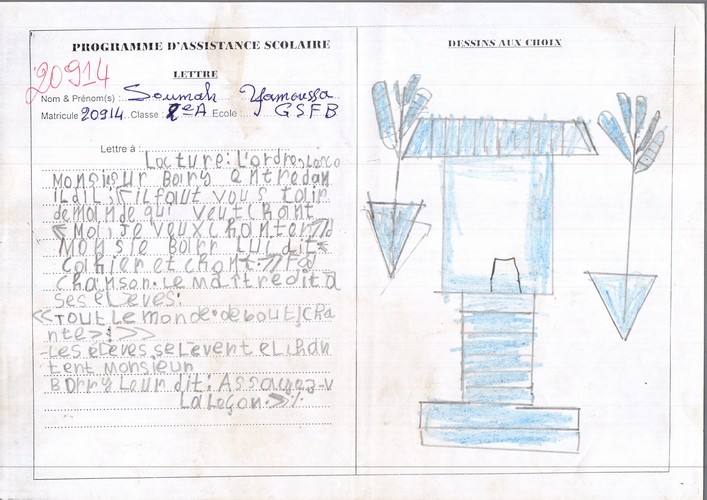 PROGRAMME D'ASSISTANCE SCOLAIRE
20914
LETTRE
Nom & Prénom(s) : Soumah Yamoussa
Matricule 20914 Classe : 2e A Ecole : GSFB
Lettre à :
Lecture: L'ordre
Monsieur Barry entre dan
il dit, il faut vous tair
demande qui veut chant
« Moi, je veux chanter »
Monsie Barr lui dit «
cahier et chant. »
chanson. Le maître dit à
ses eleves:
«Tout le monde debout, cha
nte» ! »
-Les élèves se lèvent et chan
tent monsieur
Barry leur dit: Assayez-v
La leçon.
DESSINS AUX CHOIX